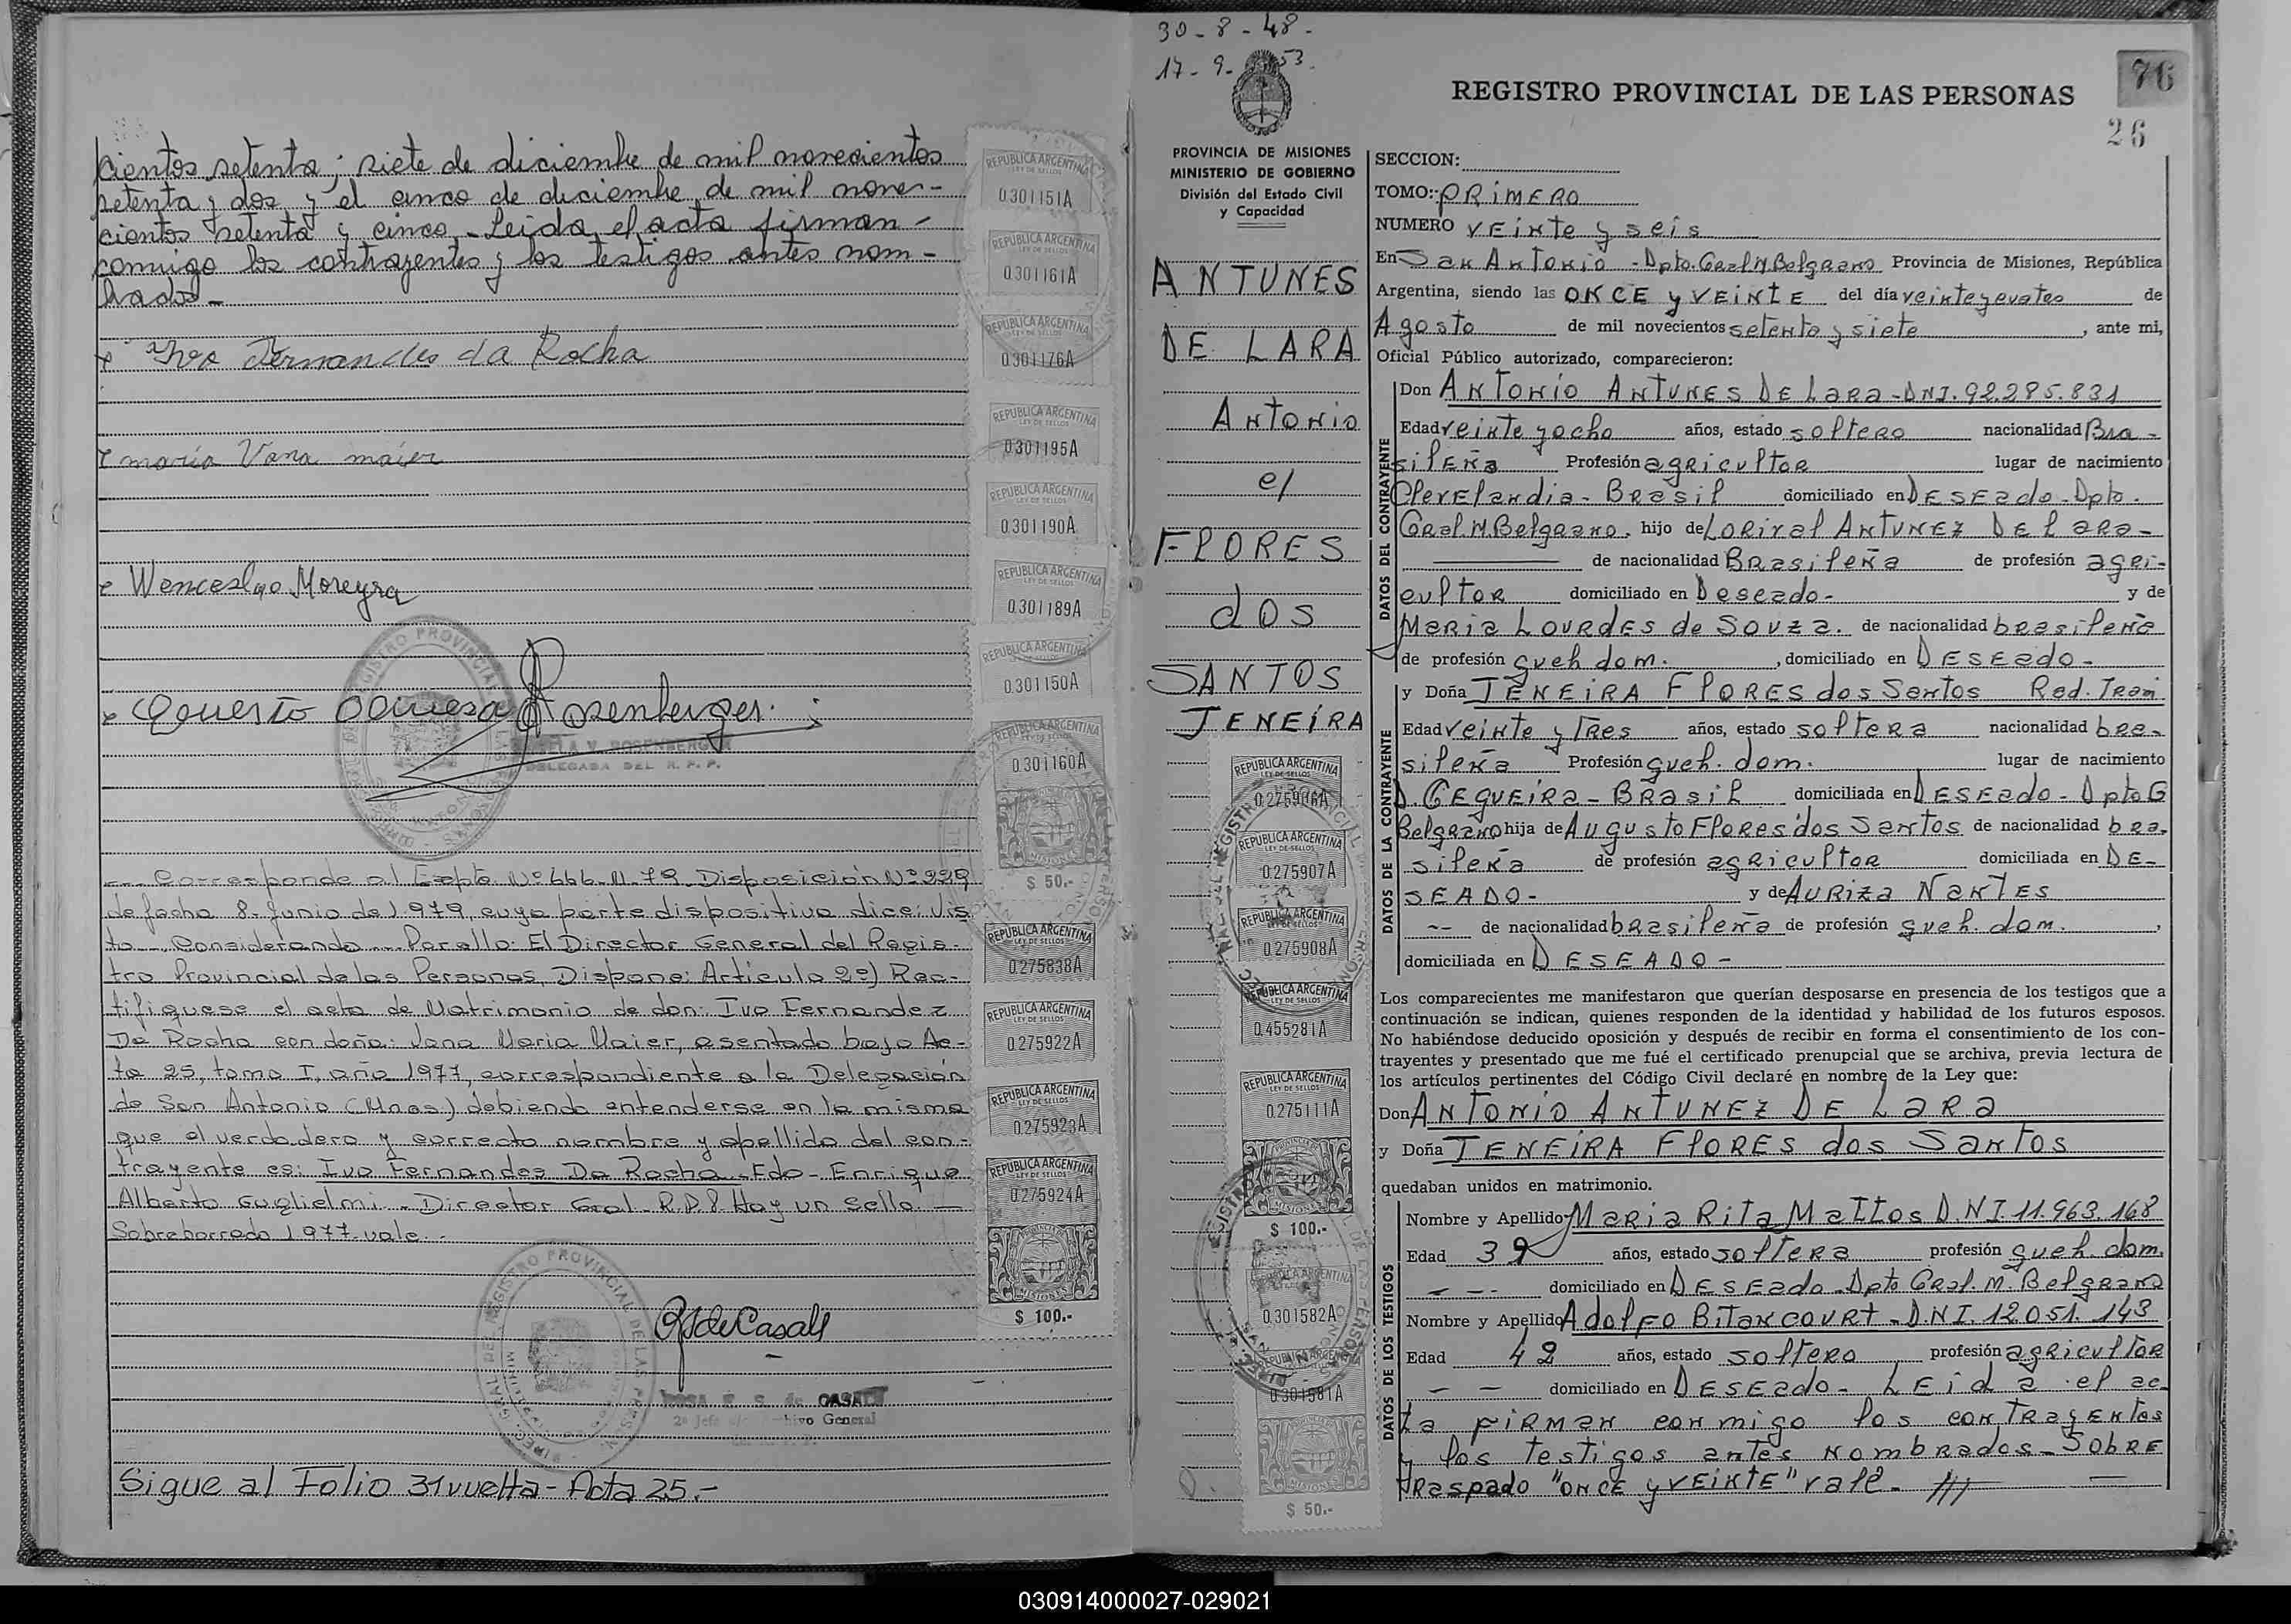 cientos setenta; siete de diciembre de mil novecientos
setenta y dos y el cinco de diciembre de mil nove-
cientos setenta y cinco - Leida el acta firman -
conmigo los contrayentes y los testigos antes nom -
brados -
Ivo Fernandes da Rocha
maría Vana maier
Wenceslao Moreyra
Rosenberger.
DELEGADA DEL R. P. P.
--- Corresponde al Expte. Nº 666-M-79. Disposición Nº 229
de fecha 8-Junio de 1.979, cuya parte dispositiva dice: Vis
to --- Considerando --- Por ello: El Director General del Regis-
tro Provincial de las Personas, Dispone: Artículo 2º) Rec-
tifíquese el acta de Matrimonio de don: Ivo Fernandez
Da Rocha con doña: Vana Maria Maier, asentado bajo Ac-
ta 25, tomo I, año 1977, correspondiente a la Delegación
de San Antonio (Mnes) debiendo entenderse en la misma
que el verdadero y correcto nombre y apellido del con-
trayente es: Ivo Fernandes Da Rocha - Fdo - Enrique
Alberto Guglielmi - Director Gral. R.P.P. Hay un sello. —
Sobreborrado 1977. vale. -
RSdeCasall
2º Jefe Archivo General
Sigue al Folio 31 vuelta - Acta 25.-
REPUBLICA ARGENTINA
LEY DE SELLOS
0.301151A
REPUBLICA ARGENTINA
LEY DE SELLOS
0.301161A
REPUBLICA ARGENTINA
0.301176A
REPUBLICA ARGENTINA
LEY DE SELLOS
0.301195A
REPUBLICA ARGENTINA
LEY DE SELLOS
0.301190A
REPUBLICA ARGENTINA
LEY DE SELLOS
0.301189A
REPUBLICA ARGENTINA
LEY DE SELLOS
0.301150A
REPUBLICA ARGENTINA
0.301160A
MISIONES
$ 50.-
REPUBLICA ARGENTINA
LEY DE SELLOS
0.275838A
REPUBLICA ARGENTINA
LEY DE SELLOS
0.275922A
REPUBLICA ARGENTINA
LEY DE SELLOS
0.275923A
REPUBLICA ARGENTINA
LEY DE SELLOS
0.275924A
MISIONES
$ 100.-
30-8-48-
17-9-53.
PROVINCIA DE MISIONES
MINISTERIO DE GOBIERNO
División del Estado Civil
y Capacidad
ANTUNES
DE LARA
Antonio
el
FLORES
dos
SANTOS
JENEÍRA
REPUBLICA ARGENTINA
LEY DE SELLOS
0.275906A
REPUBLICA ARGENTINA
LEY DE SELLOS
0.275907A
REPUBLICA ARGENTINA
LEY DE SELLOS
0.275908A
REPUBLICA ARGENTINA
LEY DE SELLOS
0.455281A
REPUBLICA ARGENTINA
LEY DE SELLOS
0.275111A
$ 100.-
0.301582A
0.301581A
$ 50.-
76
REGISTRO PROVINCIAL DE LAS PERSONAS
26
SECCION:
TOMO: PRIMERO
NUMERO VEINTE y seis
En San Antonio - Dpto. Gral M. Belgrano Provincia de Misiones, República
Argentina, siendo las ONCE y VEINTE del día veinte y cuatro de
Agosto de mil novecientos setenta y siete, ante mi,
Oficial Público autorizado, comparecieron:
DATOS DEL CONTRAYENTE
Don ANTONIO ANTUNES DE Lara - DNI. 92.285.831
Edad veinte y ocho años, estado soltero nacionalidad Bra -
sileña Profesión agricultor lugar de nacimiento
Clevelandia - Brasil domiciliado en DESEado - Dpto.
Gral. M. Belgrano, hijo de LORIVAL ANTUNEZ DE lara -
de nacionalidad Brasileña de profesión agri-
cultor domiciliado en Deseado - y de
Maria LOURDES de SOUZA. de nacionalidad brasileña
de profesión queh dom. , domiciliado en DESEado -
DATOS DE LA CONTRAYENTE
y Doña JENEIRA FLORES dos Santos Rad. Tram
Edad veinte y Tres años, estado soltera nacionalidad bra-
sileña Profesión queh. dom. lugar de nacimiento
D. CEQUEIRA - BRasil domiciliada en DESEado - Dpto G
Belgrano hija de Augusto Flores dos Santos de nacionalidad bra.
sileña de profesión agricultor domiciliada en DE-
SEADO - y de AURIZA NANTES
-- de nacionalidad brasileña de profesión queh. dom. ,
domiciliada en DESEADO -
Los comparecientes me manifestaron que querían desposarse en presencia de los testigos que a
continuación se indican, quienes responden de la identidad y habilidad de los futuros esposos.
No habiéndose deducido oposición y después de recibir en forma el consentimiento de los con-
trayentes y presentado que me fué el certificado prenupcial que se archiva, previa lectura de
los artículos pertinentes del Código Civil declaré en nombre de la Ley que:
Don ANTONIO ANTUNEZ DE LARA
y Doña JENEIRA FlORES dos Santos
quedaban unidos en matrimonio.
DATOS DE LOS TESTIGOS
Nombre y Apellido Maria Rita Mattos D.N.I. 11.963.168
Edad 39 años, estado soltera profesión queh. dom.
- -- domiciliado en DESEado - Dpto Gral. M. Belgrano
Nombre y Apellido Adolfo Bitancourt - D.N.I. 12.051.143
Edad 42 años, estado soltero profesión agricultor
- - domiciliado en DESEado - LEida el ac
ta firman conmigo los contrayentes
y los testigos antes nombrados - Sobre
Raspado "ONCE y VEINTE" vale. ///
030914000027-029021